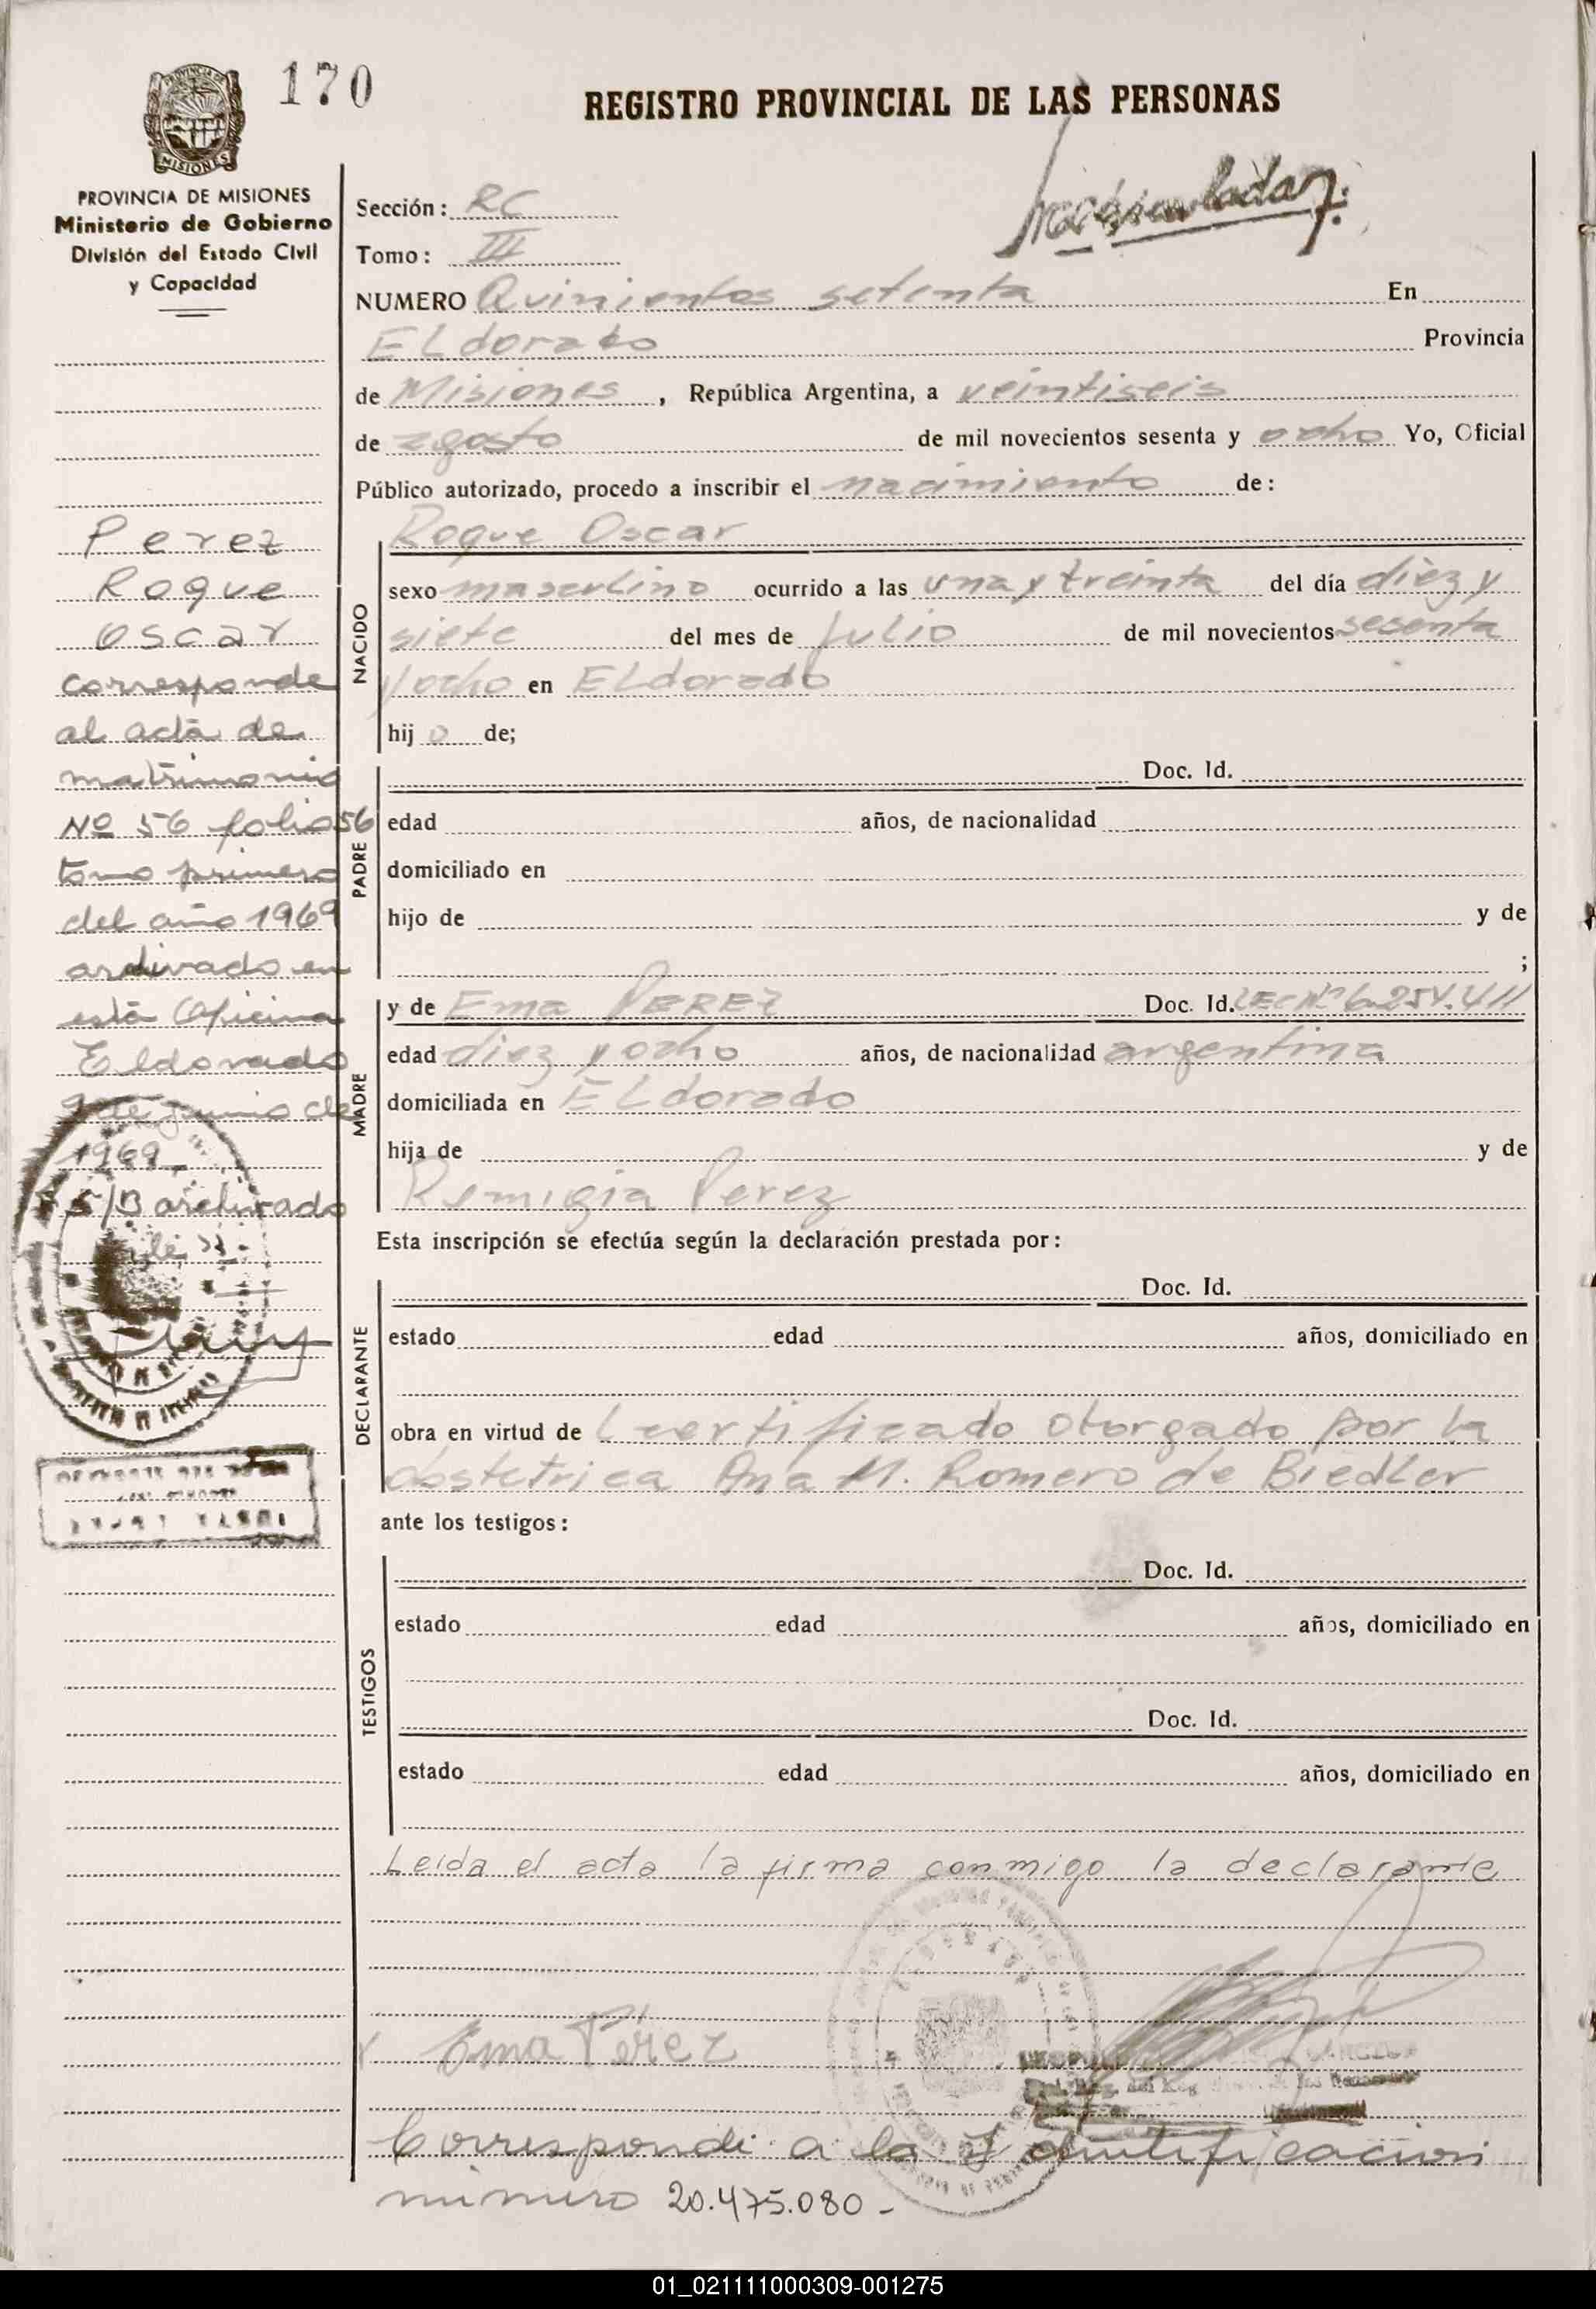 170
REGISTRO PROVINCIAL DE LAS PERSONAS
PROVINCIA DE
MISIONES
PROVINCIA DE MISIONES
Ministerio de Gobierno
División del Estado Civil
y Capacidad
Sección: RC
Tomo: III
NUMERO Quinientos setenta En
ELdorado Provincia
de Misiones, República Argentina, a veintiseis
de agosto de mil novecientos sesenta y ocho Yo, Oficial
Público autorizado, procedo a inscribir el nacimiento de:
Perez
Roque
oscar
corresponde
al acta de
matrimonio
Nº 56 folio 56
tomo primero
del año 1969
archivado en
esta Oficina
Eldorado
9 de junio de
1969
S/B archivado
NACIDO
Roque Oscar
sexo masculino ocurrido a las una y treinta del día diez y
siete del mes de Julio de mil novecientos sesenta
y ocho en ELdorado
hijo de;
PADRE
Doc. Id.
edad años, de nacionalidad
domiciliado en
hijo de y de
;
MADRE
y de Ema PEREZ Doc. Id. LEC Nº 6.254.411
edad diez y ocho años, de nacionalidad argentina
domiciliada en ELdorado
hija de y de
Remigia Perez
Esta inscripción se efectúa según la declaración prestada por:
DECLARANTE
Doc. Id.
estado edad años, domiciliado en
obra en virtud de L certificado otorgado por la
obstetrica Ana M. Romero de Biedler
ante los testigos:
TESTIGOS
Doc. Id.
estado edad años, domiciliado en
Doc. Id.
estado edad años, domiciliado en
Leida el acta la firma conmigo la declarante
Ema Pérez
Corresponde a la Identificacion
número 20.475.080-
01_021111000309-001275